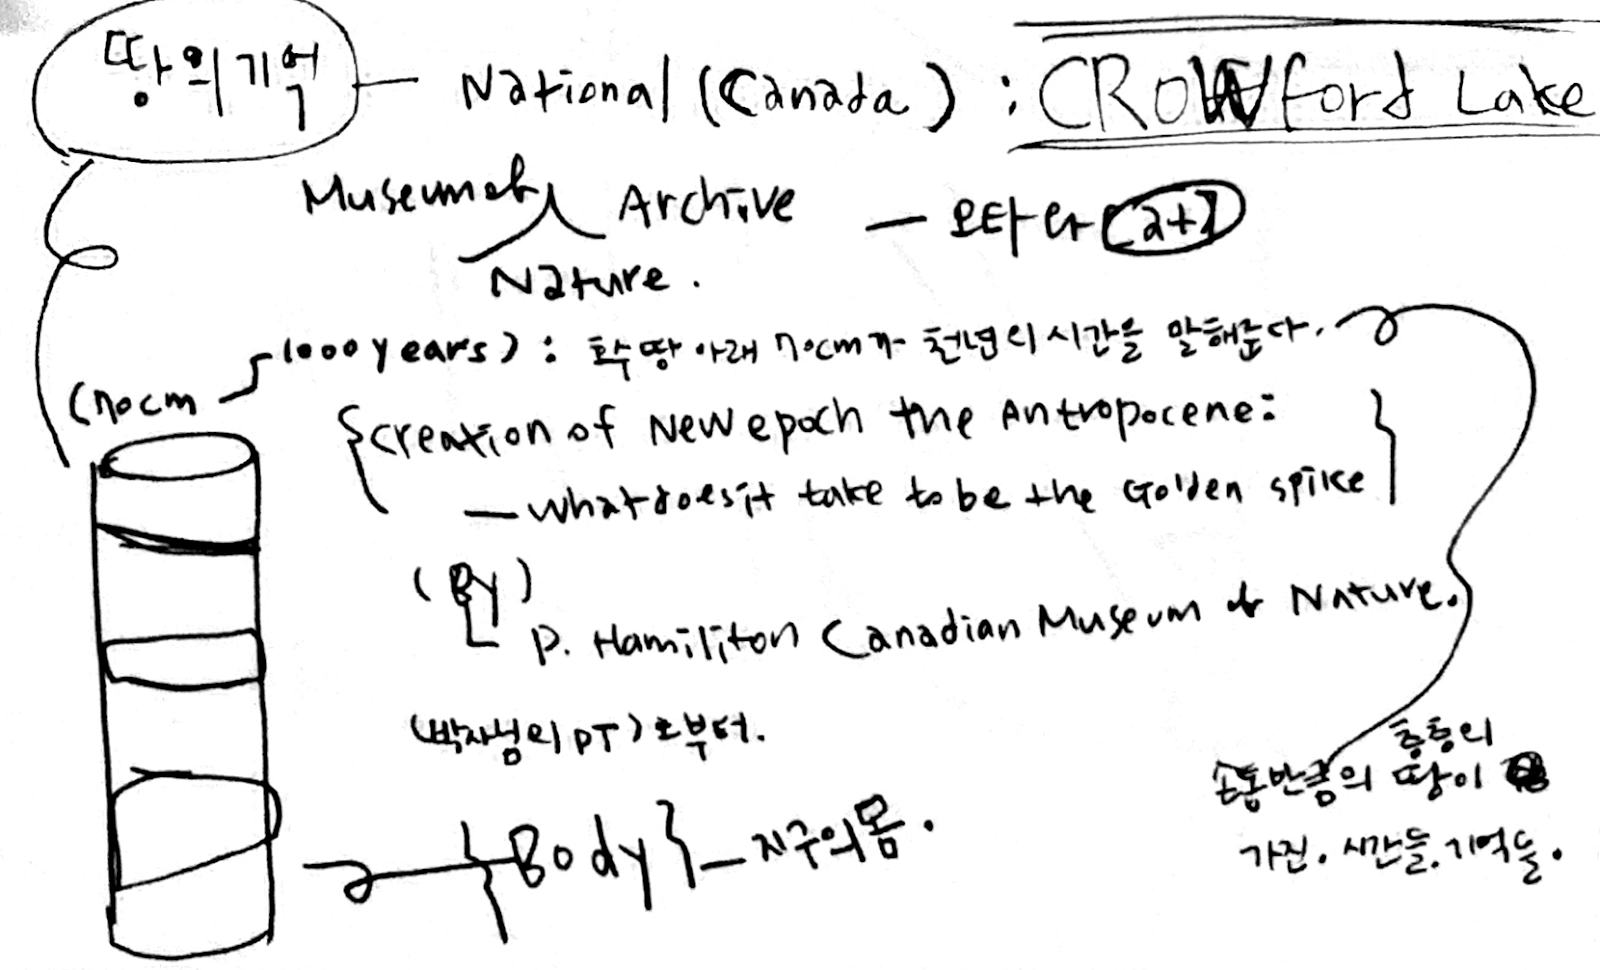 땅의기억 — National (Canada) : CROWford Lake
Museum of Archive — 오타와 [a+]
Nature.
(70cm — 1000years) : 호수땅 아래 70cm가 천년의 시간을 말해준다.
{creation of New epoch the Antropocene:
— what does it take to be the Golden spike}
(By)
P. Hamiliton Canadian Museum of Nature.
(박사님의 PT)로부터.
층층의
손톱만큼의 땅이
가진. 시간들. 기억들.
{Body} — 지구의몸.